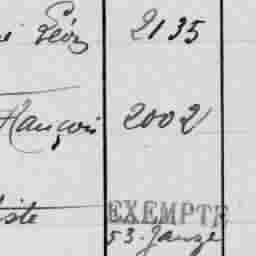 Léon 2135
François 2002
iste EXEMPTE
53. Janze